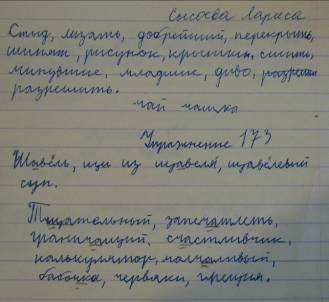 Сысоева Лариса
Стыд, лизать, добрейший, перекрыть,
шипят, рисунок, крошить,
минувшие, младшие, диво,
разрешить.
чай чашка
Упражнение 173
Щавель, щи из щавеля, щавелевый
суп.
Тщательный, запечатлеть,
граничащий, счастливчик,
калькулятор, молчаливый,
бабочка, червяки, Греция.